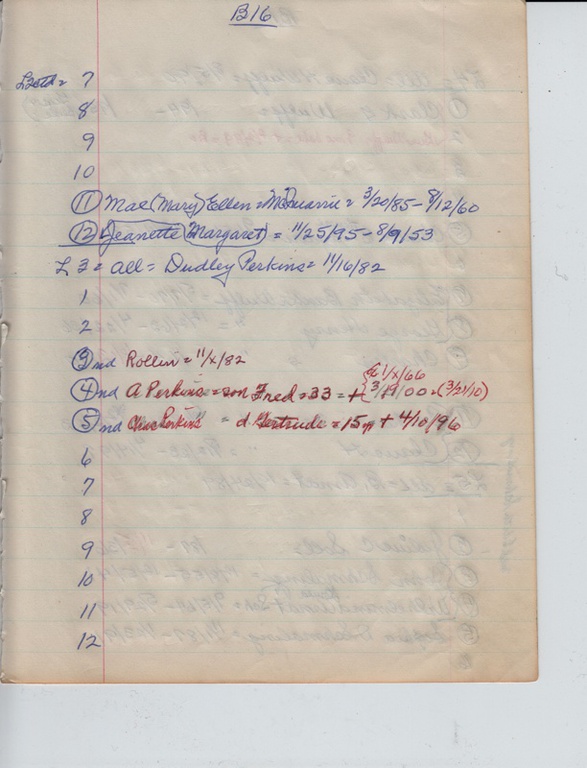 B16
L2 = 7
8
9
10
(11) Mae (Mary) Ellen = McQuarrie = 3/20/85 - 8/12/60
(12) Jeanette (Margaret) = 11/25/95 - 8/9/53
L 3 = all = Dudley Perkins = 11/16/82
1
2
(3) nd Rollin = 11/x/82
x 1/x/66
(4) nd A Perkins = son Fred = 33 = + 3/19/00 = (3/21/10)
(5) nd Perkins = d. Gertrude = 15 + 4/10/96
6
7
8
9
10
11
12